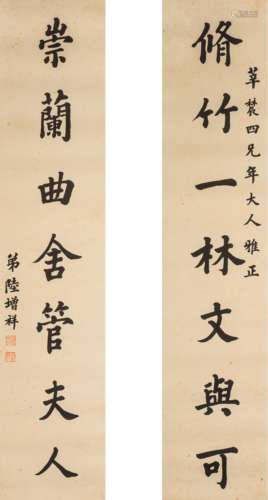 莘農四兄年大人雅正
脩竹一林文與可
崇蘭曲舍管夫人
弟陸增祥